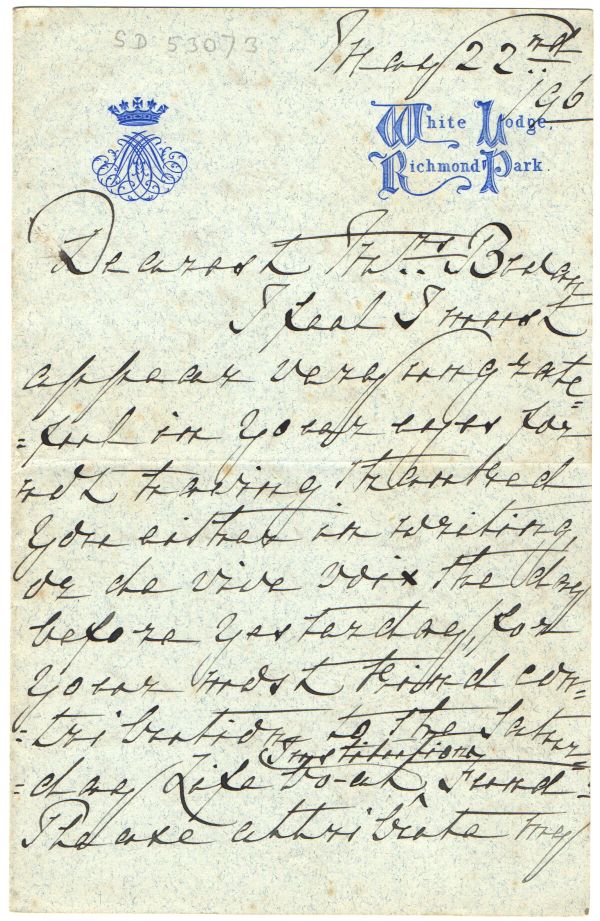 SD 53073
May 22nd
/96
White Lodge,
Richmond Park.
Dearest Mrs
I feel I must
appear very ungrate=
=ful in your eyes for
not having thanked
you either in writing,
or de vive voix the day
before yesterday, for
your most kind con=
=tribution to the Satur=
Institution
=day Life boat Fund.
Please attribute my